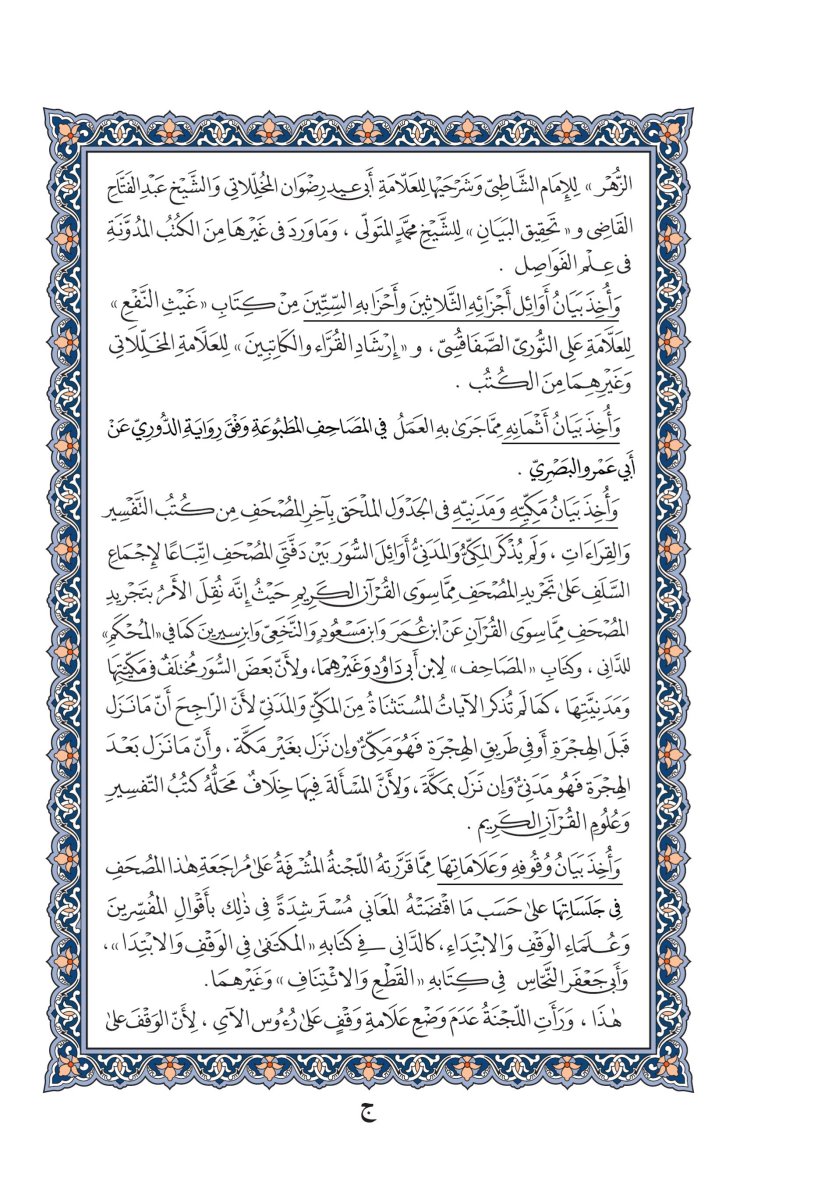 الزُّهْر » لِلإِمَام الشَّاطِبِيّ وَشَرْحَيْهَا لِلعَلّامَةِ أَبِي عِيد رِضْوَان المُخَلِّلاتِي وَالشَّيْخ عَبْدِ الفَتَّاحِ
القَاضِي و « تَحقِيق البَيَانِ » لِلشَّيْخ مُحَمَّدٍ المُتَولِّي ، وَمَا وَرَدَ فى غَيْرِهَا مِنَ الكُتُبِ المُدَوَّنَةِ
فى عِلْمِ الفَوَاصِل .
وَأُخِذَ بَيَانُ أَوَائِلِ أَجْزَائِهِ الثَّلَاثِينَ وأَحْزَابِهِ السِّتِّينَ مِنْ كِتَابِ « غَيْثِ النَّفْعِ »
لِلعَلَّامَةِ عَلِي النُّورِيّ الصَّفَاقُسِيّ ، و « إِرْشَادِ القُرَّاء والكَاتِبِينَ » لِلعَلَّامةِ المُخَلِّلَاتِي
وَغَيْرِهِمَا مِنَ الكُتُب .
وَأُخِذَ بَيَانُ أَثْمَانِهِ مِمَّا جَرَى بِهِ العَمَلُ في المَصَاحِفِ المَطبُوعَةِ وَفْقَ رِوَايَةِ الدُّورِيّ عَنْ
أَبي عَمْرو البَصْرِيّ .
وَأُخِذَ بَيَانُ مَكِيّهِ وَمَدَنِيّهِ فى الجَدْوَلِ المُلْحَقِ بِآخِرِ المُصْحَفِ مِن كُتُبِ التَّفْسِيرِ
وَالقِرَاءَاتِ ، وَلَم يُذْكَرِ المَكِّيُّ وَالمَدَنِيُّ أَوَائِلَ السُّوَرِ بَيْن دَفَّتَيِ المُصْحَفِ اتِّبَاعًا لإِجْمَاعِ
السَّلَفِ عَلَى تَجْرِيدِ المُصْحَفِ مِمَّا سِوَى القُرْآنِ الكَرِيمِ حَيْثُ إِنَّه نُقِلَ الأَمْرُ بِتَجْرِيدِ
المُصْحَفِ مِمَّا سِوَى القُرْآنِ عَنْ ابنِ عُمَرَ وَابنِ مَسْعُودٍ وَالنَّخَعِيّ وَابنِ سِيرِينَ كمَا فِي « المُحْكَمِ »
للدَّانِى ، وكِتَابِ « المَصَاحِف » لِابنِ أَبِي دَاوُدَ وَغَيْرِهِمَا، ولأَنّ بَعضَ السُّوَرِ مُختَلَفٌ فى مَكِّيَّتِهَا
وَمَدَنِيَّتِهَا ، كَمَا لَم تُذكَر الآيَاتُ المُسْتَثنَاةُ مِنَ المَكِّيِّ وَالمَدَنِيِّ لأَنّ الرّاجِحَ أَنّ مَا نَزَل
قَبْلَ الهِجْرَةِ أَو فِي طَرِيقِ الهِجْرَةِ فَهُوَ مَكِّيٌّ وإِن نَزَل بِغَيْرِ مَكَّةَ ، وأَنّ مَا نَزَل بَعْدَ
الهِجْرَةِ فَهُو مَدَنِيٌّ وَإِن نَزَل بِمَكَّةَ ، وَلأَنَّ المَسْأَلَةَ فِيهَا خِلَافٌ مَحَلُّهُ كتُبُ التّفسِيرِ
وَعُلُومِ القُرْآنِ الكَرِيمِ .
وَأُخِذَ بَيَانُ وُقُوفِهِ وَعَلَامَاتِهَا مِمَّا قَرَّرَتهُ اللّجْنَةُ المُشْرِفَةُ عَلَىٰ مُرَاجَعَةِ هٰذَا المُصْحَفِ
فِي جَلَسَاتِهَا عَلىٰ حَسَب مَا اقْتَضَتْهُ المَعَاني مُسْتَرشِدَةً فِي ذٰلِك بِأَقْوَالِ المُفَسِّرِينَ
وَعُلَمَاءِ الوَقْفِ وَالابْتِدَاءِ، كالدَّانِى فِى كتَابهِ « المكتَفَىٰ فِي الوَقْفِ وَالابْتِدَا » ،
وَأَبِي جَعْفَر النَّحَّاسِ فِي كِتَابهِ « القَطْعِ وَالائتِنَافِ » وَغَيْرِهِمَا.
هٰذَا ، وَرَأَتِ اللّجْنَةُ عَدَمَ وَضْعِ عَلَامَةِ وَقْفٍ عَلىٰ رُءُوس الآيِ ، لِأَنّ الوَقْفَ عَلىٰ
ج